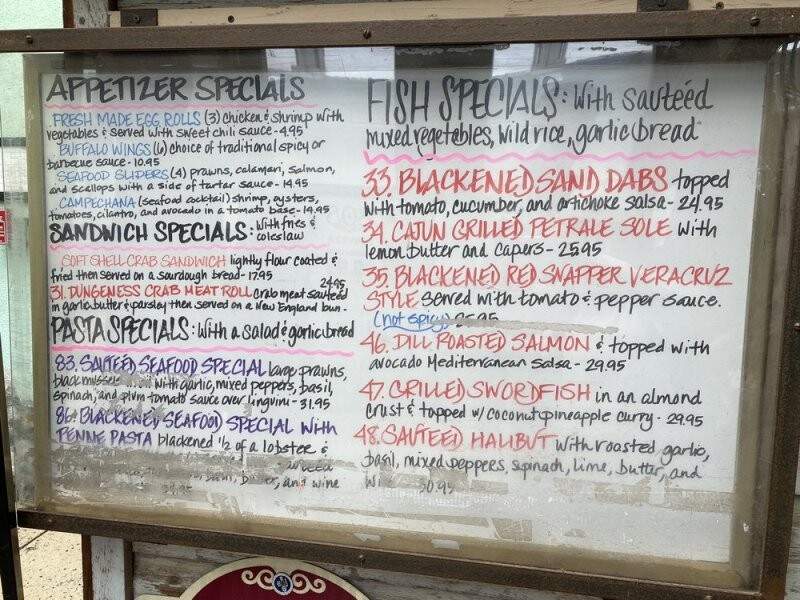 APPETIZER SPECIALS
FRESH MADE EGG ROLLS (3) chicken & shrimp with
vegetables & served with sweet chili sauce - 4.95
BUFFALO WINGS (6) choice of traditional spicy or
barbecue sauce - 10.95
SEAFOOD SLIDERS (4) prawns, calamari, salmon,
and scallops with a side of tartar sauce - 14.95
CAMPECHANA (seafood cocktail) shrimp, oysters,
tomatoes, cilantro, and avocado in a tomato base - 14.95
SANDWICH SPECIALS: with fries &
coleslaw
SOFT SHELL CRAB SANDWICH lightly flour coated &
fried then served on a sourdough bread - 17.95
31. DUNGENESS CRAB MEAT ROLL crab meat sautéed 24.95
in garlic butter & parsley then served on a New England bun.
PASTA SPECIALS: With a salad & garlic bread
83. SAUTÉED SEAFOOD SPECIAL large prawns,
black mussels with garlic, mixed peppers, basil,
spinach, and plum tomato sauce over linguini - 31.95
86. BLACKENED SEAFOOD SPECIAL WITH
PENNE PASTA blackened 1/2 of a lobster &
and wine
FISH SPECIALS: With sautéed
mixed vegetables, wild rice, garlic bread
33. BLACKENED SAND DABS topped
with tomato, cucumber, and artichoke salsa - 24.95
34. CAJUN GRILLED PETRALE SOLE with
lemon butter and capers - 25.95
35. BLACKENED RED SNAPPER VERACRUZ
STYLE served with tomato & pepper sauce.
(not spicy)
46. DILL ROASTED SALMON & topped with
avocado Mediterranean salsa - 29.95
47. GRILLED SWORDFISH in an almond
crust & topped w/ coconut pineapple curry - 29.95
48. SAUTÉED HALIBUT with roasted garlic,
basil, mixed peppers, spinach, lime, butter, and
30.95